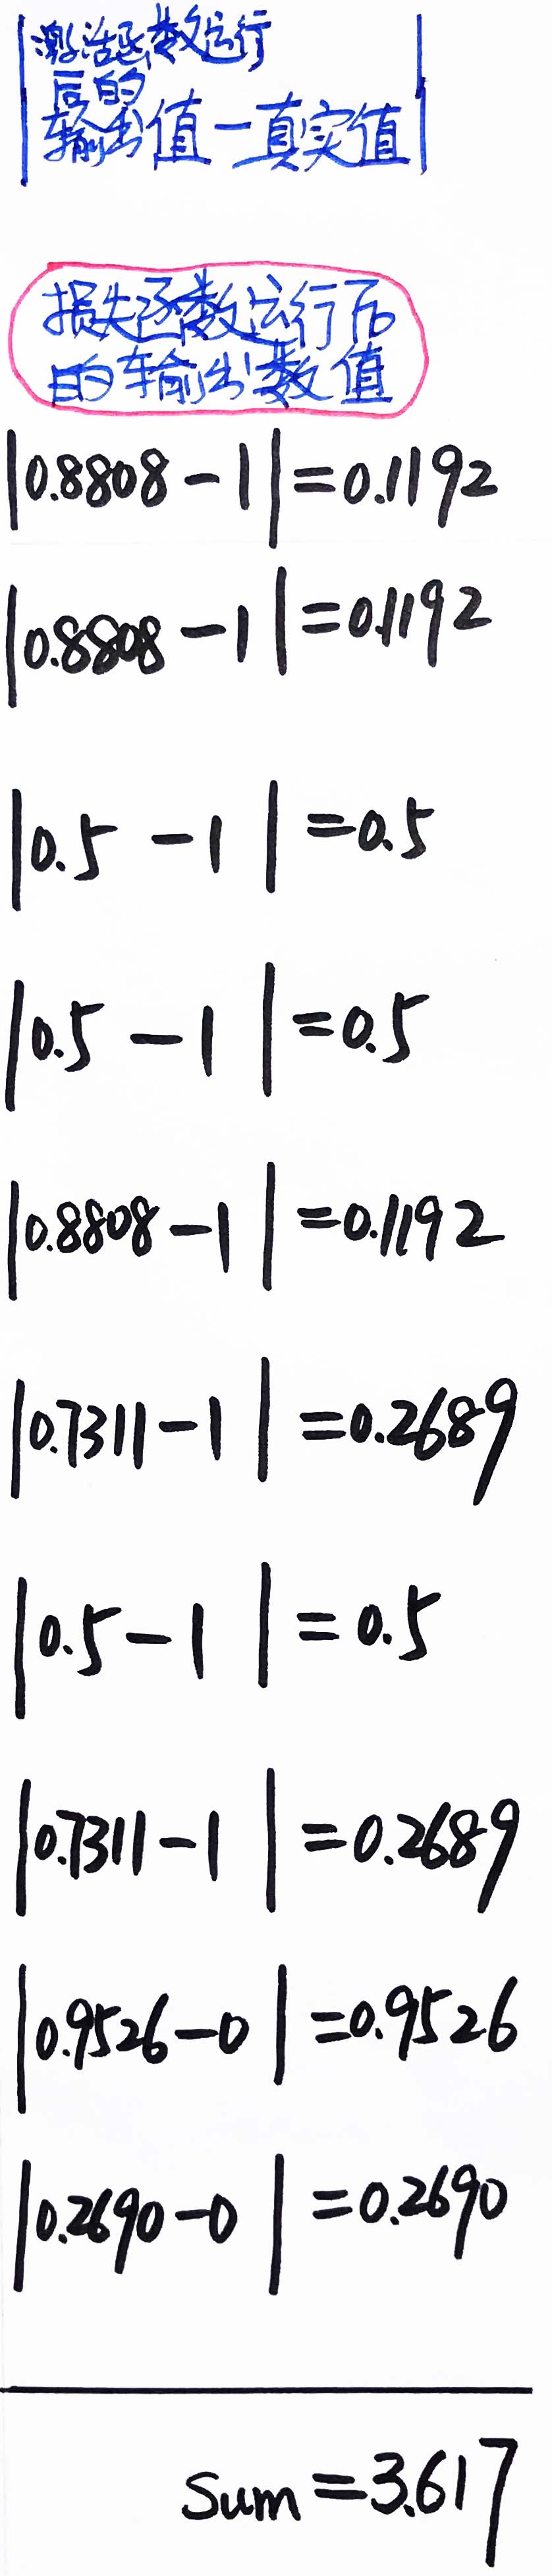 |激活函数运行
后的
输出值-真实值|
损失函数运行后
的输出数值
|0.8808-1|=0.1192
|0.8808-1|=0.1192
|0.5-1|=0.5
|0.5-1|=0.5
|0.8808-1|=0.1192
|0.7311-1|=0.2689
|0.5-1|=0.5
|0.7311-1|=0.2689
|0.9526-0|=0.9526
|0.2690-0|=0.2690
Sum=3.617